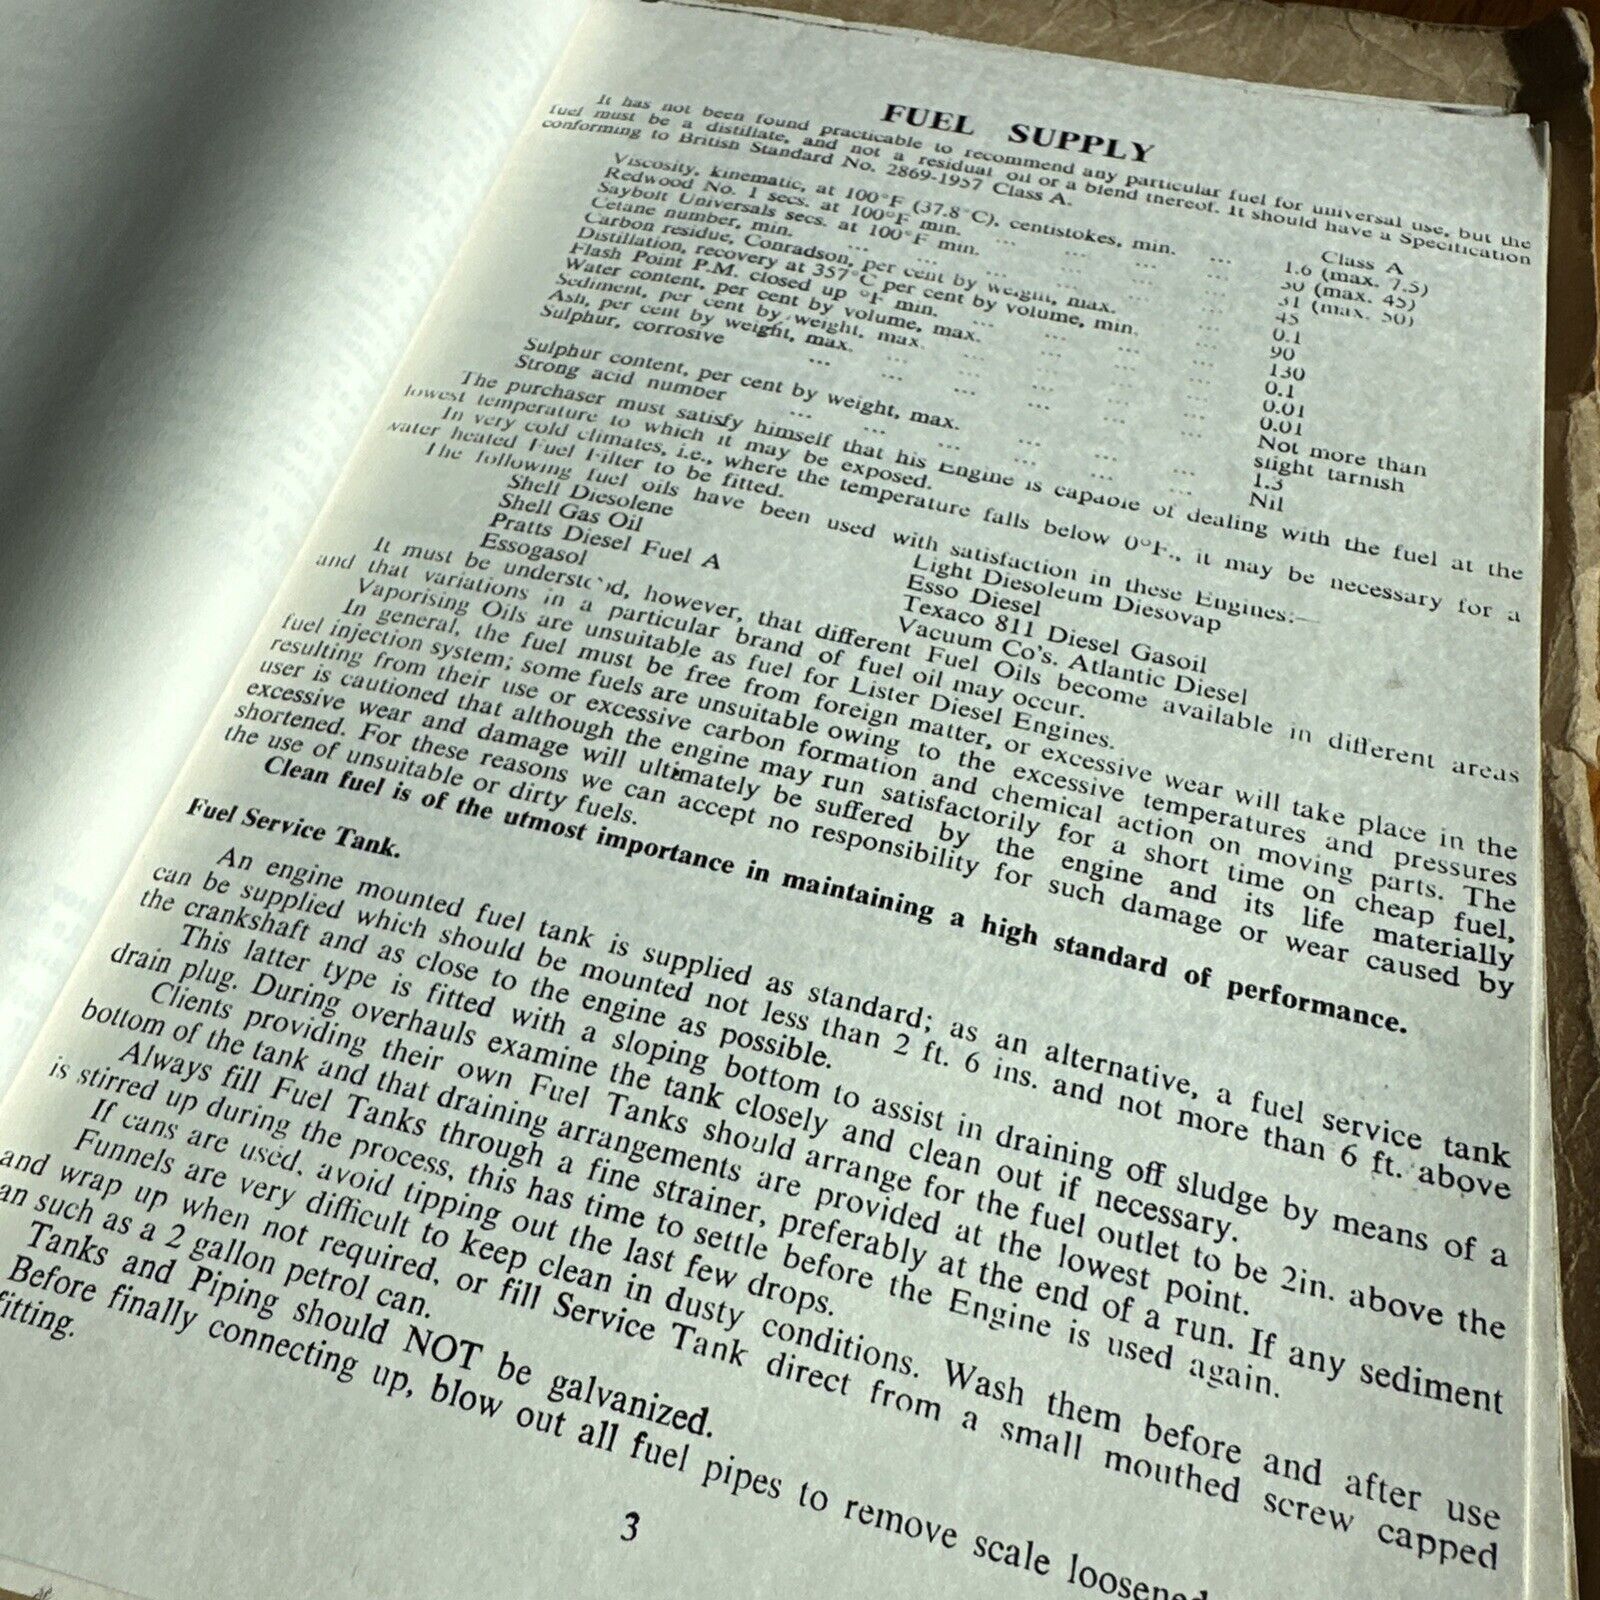 FUEL SUPPLY
It has not been found practicable to recommend any particular fuel for universal use, but the
fuel must be a distillate, and not a residual oil or a blend thereof. It should have a Specification
conforming to British Standard No. 2869-1957 Class A.
Class A
Viscosity, kinematic, at 100°F (37.8°C), centistokes, min. ... 1.6 (max. 7.5)
Redwood No. 1 secs. at 100°F min. ... ... ... ... 30 (max. 45)
Saybolt Universals secs. at 100°F min. ... ... ... ... 31 (max. 50)
Cetane number, min. ... ... ... ... ... 45
Carbon residue, Conradson, per cent by weight, max. ... ... 0.1
Distillation, recovery at 357°C per cent by volume, min. ... 90
Flash Point P.M. closed up °F min. ... ... ... ... 130
Water content, per cent by volume, max. ... ... ... 0.1
Sediment, per cent by weight, max. ... ... ... ... 0.01
Ash, per cent by weight, max. ... ... ... ... ... 0.01
Sulphur, corrosive ... ... ... ... ... ... Not more than
slight tarnish
Sulphur content, per cent by weight, max. ... ... ... 1.3
Strong acid number ... ... ... ... ... ... Nil
The purchaser must satisfy himself that his Engine is capable of dealing with the fuel at the
lowest temperature to which it may be exposed.
In very cold climates, i.e., where the temperature falls below 0°F., it may be necessary for a
water heated Fuel Filter to be fitted.
The following fuel oils have been used with satisfaction in these Engines:—
Shell Diesolene Light Diesoleum Diesovap
Shell Gas Oil Esso Diesel
Pratts Diesel Fuel A Texaco 811 Diesel Gasoil
Essogasol Vacuum Co's. Atlantic Diesel
It must be understood, however, that different Fuel Oils become available in different areas
and that variations in a particular brand of fuel oil may occur.
Vaporising Oils are unsuitable as fuel for Lister Diesel Engines.
In general, the fuel must be free from foreign matter, or excessive wear will take place in the
fuel injection system; some fuels are unsuitable owing to the excessive temperatures and pressures
resulting from their use or excessive carbon formation and chemical action on moving parts. The
user is cautioned that although the engine may run satisfactorily for a short time on cheap fuel,
excessive wear and damage will ultimately be suffered by the engine and its life materially
shortened. For these reasons we can accept no responsibility for such damage or wear caused by
the use of unsuitable or dirty fuels.
Clean fuel is of the utmost importance in maintaining a high standard of performance.
Fuel Service Tank.
An engine mounted fuel tank is supplied as standard; as an alternative, a fuel service tank
can be supplied which should be mounted not less than 2 ft. 6 ins. and not more than 6 ft. above
the crankshaft and as close to the engine as possible.
This latter type is fitted with a sloping bottom to assist in draining off sludge by means of a
drain plug. During overhauls examine the tank closely and clean out if necessary.
Clients providing their own Fuel Tanks should arrange for the fuel outlet to be 2in. above the
bottom of the tank and that draining arrangements are provided at the lowest point.
Always fill Fuel Tanks through a fine strainer, preferably at the end of a run. If any sediment
is stirred up during the process, this has time to settle before the Engine is used again.
If cans are used, avoid tipping out the last few drops.
Funnels are very difficult to keep clean in dusty conditions. Wash them before and after use
and wrap up when not required, or fill Service Tank direct from a small mouthed screw capped
an such as a 2 gallon petrol can.
Tanks and Piping should NOT be galvanized.
Before finally connecting up, blow out all fuel pipes to remove scale loosened
fitting.
3